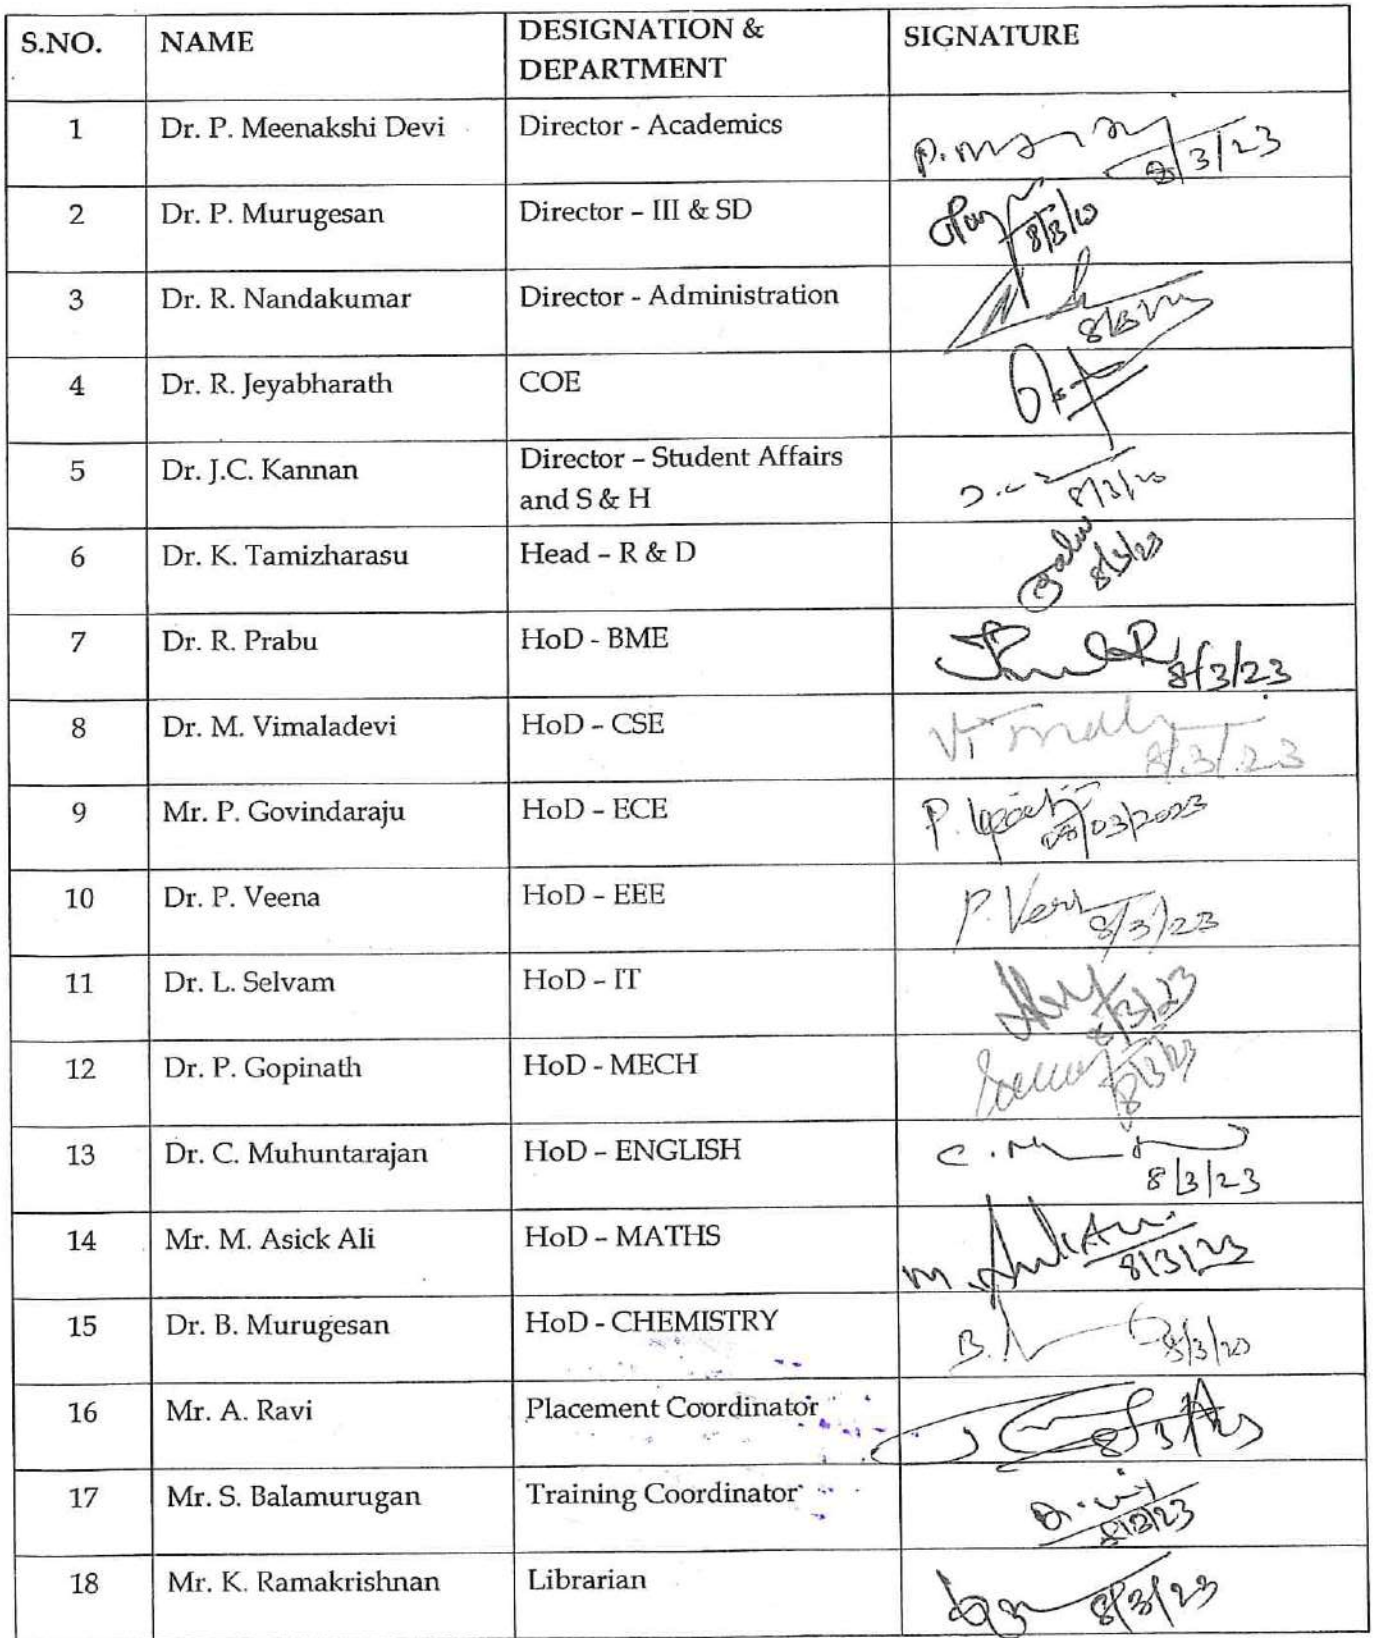 S.NO. NAME DESIGNATION & SIGNATURE
DEPARTMENT
1 Dr. P. Meenakshi Devi Director - Academics 8/3/23
2 Dr. P. Murugesan Director – III & SD
3 Dr. R. Nandakumar Director - Administration
4 Dr. R. Jeyabharath COE
5 Dr. J.C. Kannan Director – Student Affairs
and S & H
6 Dr. K. Tamizharasu Head – R & D 8/3/23
7 Dr. R. Prabu HoD - BME 8/3/23
8 Dr. M. Vimaladevi HoD – CSE 8/3/23
9 Mr. P. Govindaraju HoD – ECE 08/03/2023
10 Dr. P. Veena HoD – EEE 8/3/23
11 Dr. L. Selvam HoD – IT 8/3/23
12 Dr. P. Gopinath HoD - MECH 8/3/23
13 Dr. C. Muhuntarajan HoD – ENGLISH 8/3/23
14 Mr. M. Asick Ali HoD – MATHS 8/3/23
15 Dr. B. Murugesan HoD - CHEMISTRY
16 Mr. A. Ravi Placement Coordinator
17 Mr. S. Balamurugan Training Coordinator 8/3/23
18 Mr. K. Ramakrishnan Librarian 8/3/23